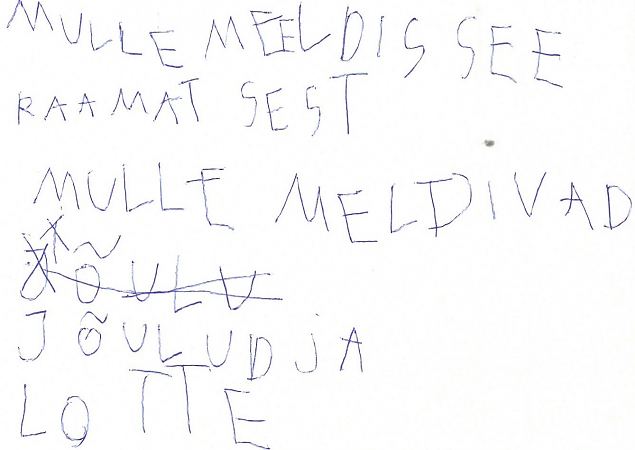 MULLE MEELDIS SEE
RAAMAT SEST
MULLE MELDIVAD
JÕULU
JÕULUD JA
LOTTE